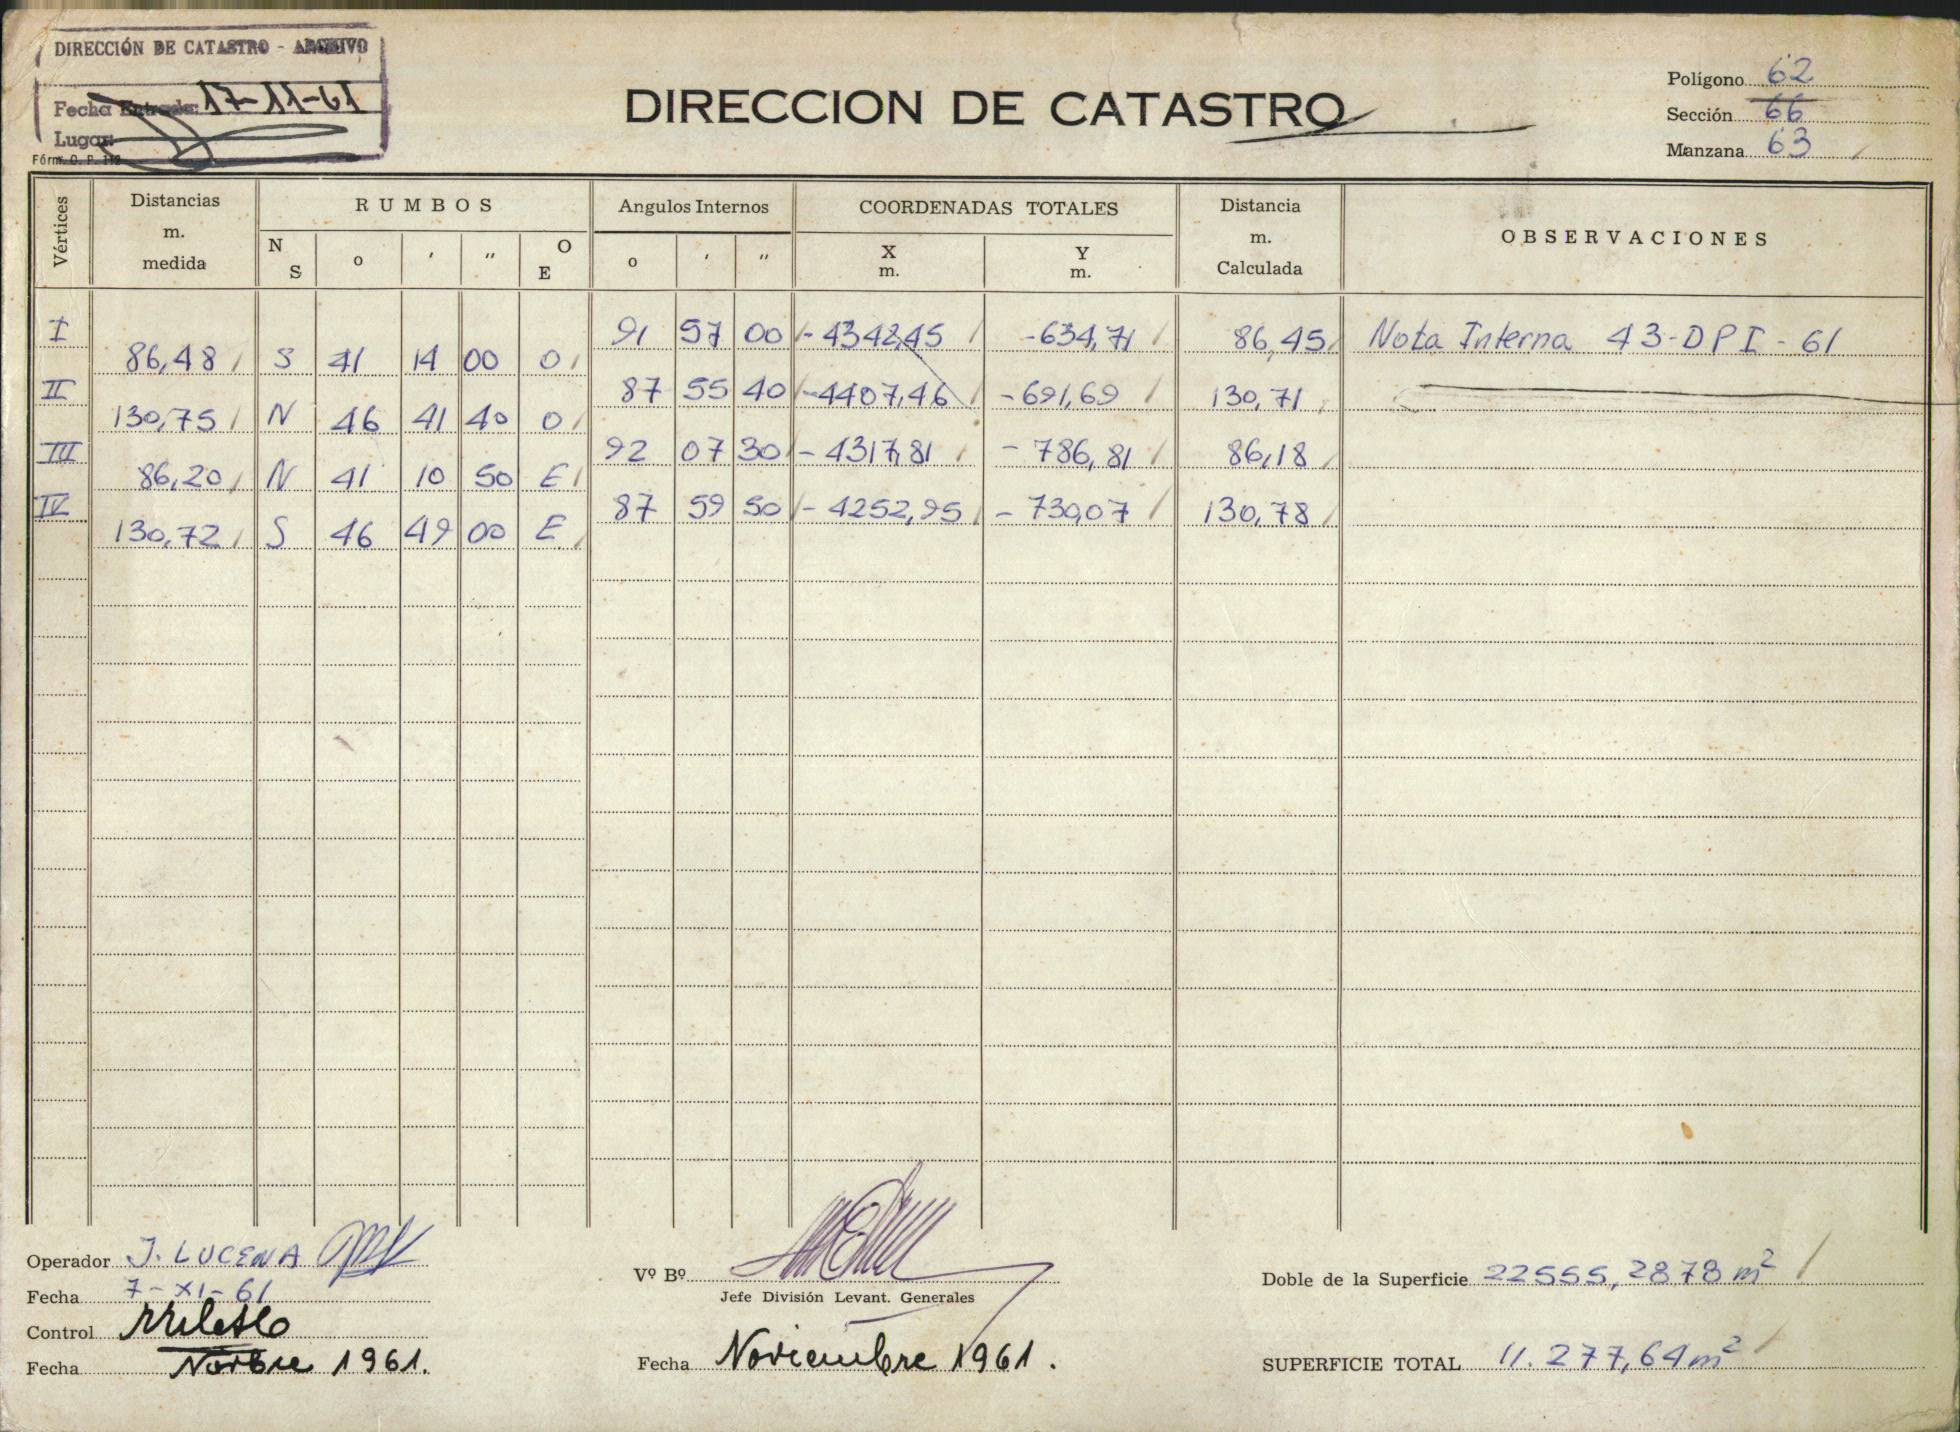 DIRECCIÓN DE CATASTRO - ARCHIVO
Fecha Entrada: 17-11-61
Lugar:
Fórm. O. P. 112
DIRECCION DE CATASTRO
Polígono 62
Sección 66
Manzana 63
Vértices
Distancias m. medida
RUMBOS
N S o ' " O E
Angulos Internos
o ' "
COORDENADAS TOTALES
X m. Y m.
Distancia m. Calculada
OBSERVACIONES
I 91 57 00 - 4342,45 -634,71 86,45 Nota Interna 43-DPI-61
86,48 S 41 14 00 O
II 87 55 40 -4407,46 -691,69 130,71
130,75 N 46 41 40 O
III 92 07 30 - 4317,81 - 786,81 86,18
86,20 N 41 10 50 E
IV 87 59 50 - 4252,95 - 730,07 130,78
130,72 S 46 49 00 E
Operador J. LUCENA
Fecha 7-XI-61
Control
Fecha Novbre 1961.
Vº Bº
Jefe División Levant. Generales
Fecha Noviembre 1961.
Doble de la Superficie 22555,2878 m²
SUPERFICIE TOTAL 11.277,64 m²